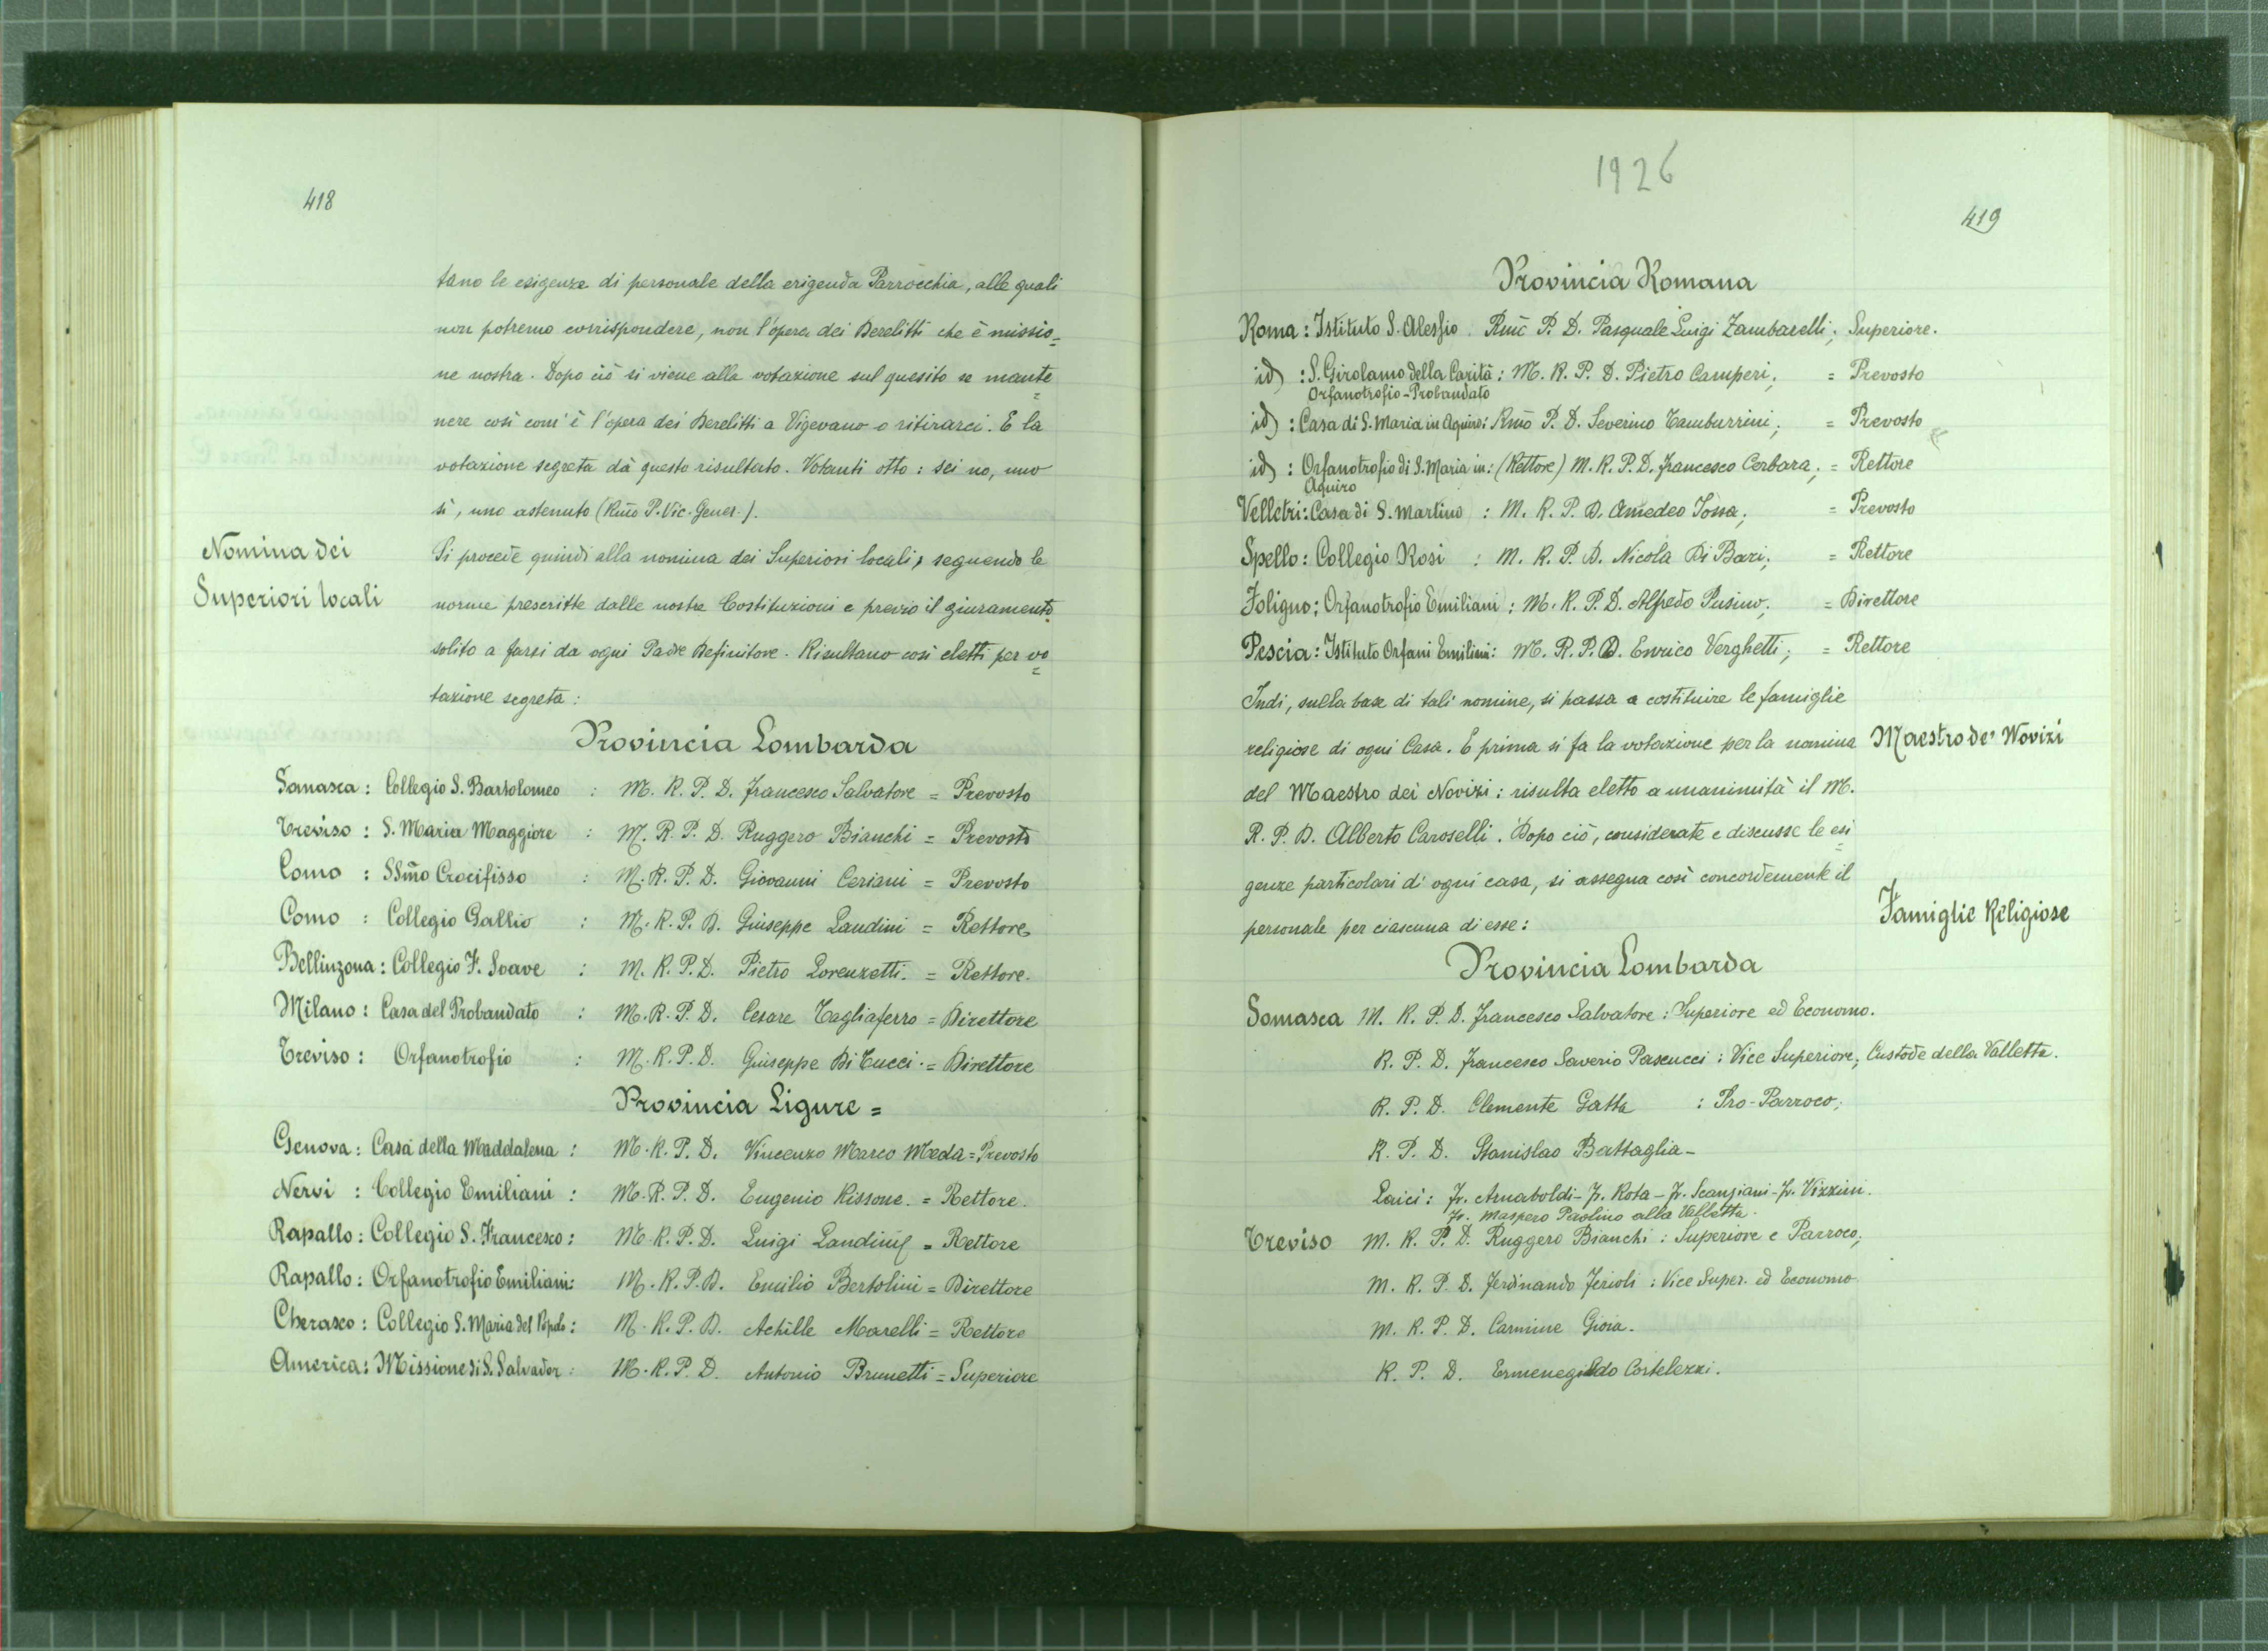 418
tano le esigenze di personale della erigenda Parrocchia, alle quali
non potremo corrispondere, non l'opera dei Derelitti che è missio=
ne nostra. Dopo ciò si viene alla votazione sul quesito se mante=
nere così com'è l'opera dei Derelitti a Vigevano o ritirarci. E la
votazione segreta dà questo risultato. Votanti otto: sei no, uno
sì, uno astenuto (Rmo P. Vic. Gener.).
Nomina dei
Superiori locali
Si procede quindi alla nomina dei Superiori locali, seguendo le
norme prescritte dalle nostre Costituzioni e previo il giuramento
solito a farsi da ogni Padre Definitore. Risultano così eletti per vo=
tazione segreta:
Provincia Lombarda
Somasca: Collegio S. Bartolomeo : M. R. P. D. Francesco Salvatore = Prevosto
Treviso: S. Maria Maggiore : M. R. P. D. Ruggero Bianchi = Prevosto
Como : SSmo Crocifisso : M. R. P. D. Giovanni Ceriani = Prevosto
Como : Collegio Gallio : M. R. P. D. Giuseppe Landini = Rettore
Bellinzona: Collegio F. Soave : M. R. P. D. Pietro Lorenzetti. = Rettore.
Milano: Casa del Probandato : M. R. P. D. Cesare Tagliaferro = Direttore
Treviso: Orfanotrofio : M. R. P. D. Giuseppe Di Tucci. = Direttore
Provincia Ligure =
Genova: Casa della Maddalena : M. R. P. D. Vincenzo Marco Meda = Prevosto
Nervi : Collegio Emiliani : M. R. P. D. Eugenio Rissone. = Rettore.
Rapallo: Collegio S. Francesco: M. R. P. D. Luigi Landini = Rettore
Rapallo: Orfanotrofio Emiliani: M. R. P. D. Emilio Bertolini = Direttore
Cherasco: Collegio S. Maria del Popolo: M. R. P. D. Achille Marelli = Rettore
America: Missione di S. Salvador: M. R. P. D. Antonio Brunetti = Superiore
1926
419
Provincia Romana
Roma: Istituto S. Alessio Rmo P. D. Pasquale Luigi Zambarelli; Superiore.
id) : S. Girolamo della Carità: M. R. P. D. Pietro Camperi; = Prevosto
Orfanotrofio-Probandato
id) : Casa di S. Maria in Aquiro: Rmo P. D. Severino Tamburrini; = Prevosto
id) : Orfanotrofio di S. Maria in: (Rettore) M. R. P. D. Francesco Cerbara; = Rettore
Aquiro
Velletri: Casa di S. Martino : M. R. P. D. Amedeo Iossa; = Prevosto
Spello: Collegio Rosi : M. R. P. D. Nicola Di Bari; = Rettore
Foligno: Orfanotrofio Emiliani: M. R. P. D. Alfredo Pusino; = Direttore
Pescia: Istituto Orfani Emilini: M. R. P. D. Enrico Verghetti; = Rettore
Indi, sulla base di tali nomine, si passa a costituire le famiglie
religiose di ogni Casa. E prima si fa la votazione per la nomina
Maestro de' Novizi
del Maestro dei Novizi: risulta eletto a unanimità il M.
R. P. D. Alberto Caroselli. Dopo ciò, considerate e discusse le esi=
genze particolari di ogni casa, si assegna così concordemente il
Famiglie Religiose
personale per ciascuna di esse:
Provincia Lombarda
Somasca M. R. P. D. Francesco Salvatore: Superiore ed Economo.
R. P. D. Francesco Saverio Pascucci: Vice Superiore; Custode della Valletta.
R. P. D. Clemente Gatta : Pro-Parroco;
R. P. D. Stanislao Battaglia-
Laici: Fr. Arnaboldi- Fr. Rota- Fr. Scanziani- Fr. Vizzini.
Fr. Maspero Paolino alla Valletta.
Treviso M. R. P. D. Ruggero Bianchi: Superiore e Parroco;
M. R. P. D. Ferdinando Ferioli: Vice Super. ed Economo
M. R. P. D. Carmine Gioia.
R. P. D. Ermenegildo Cortelezzi.